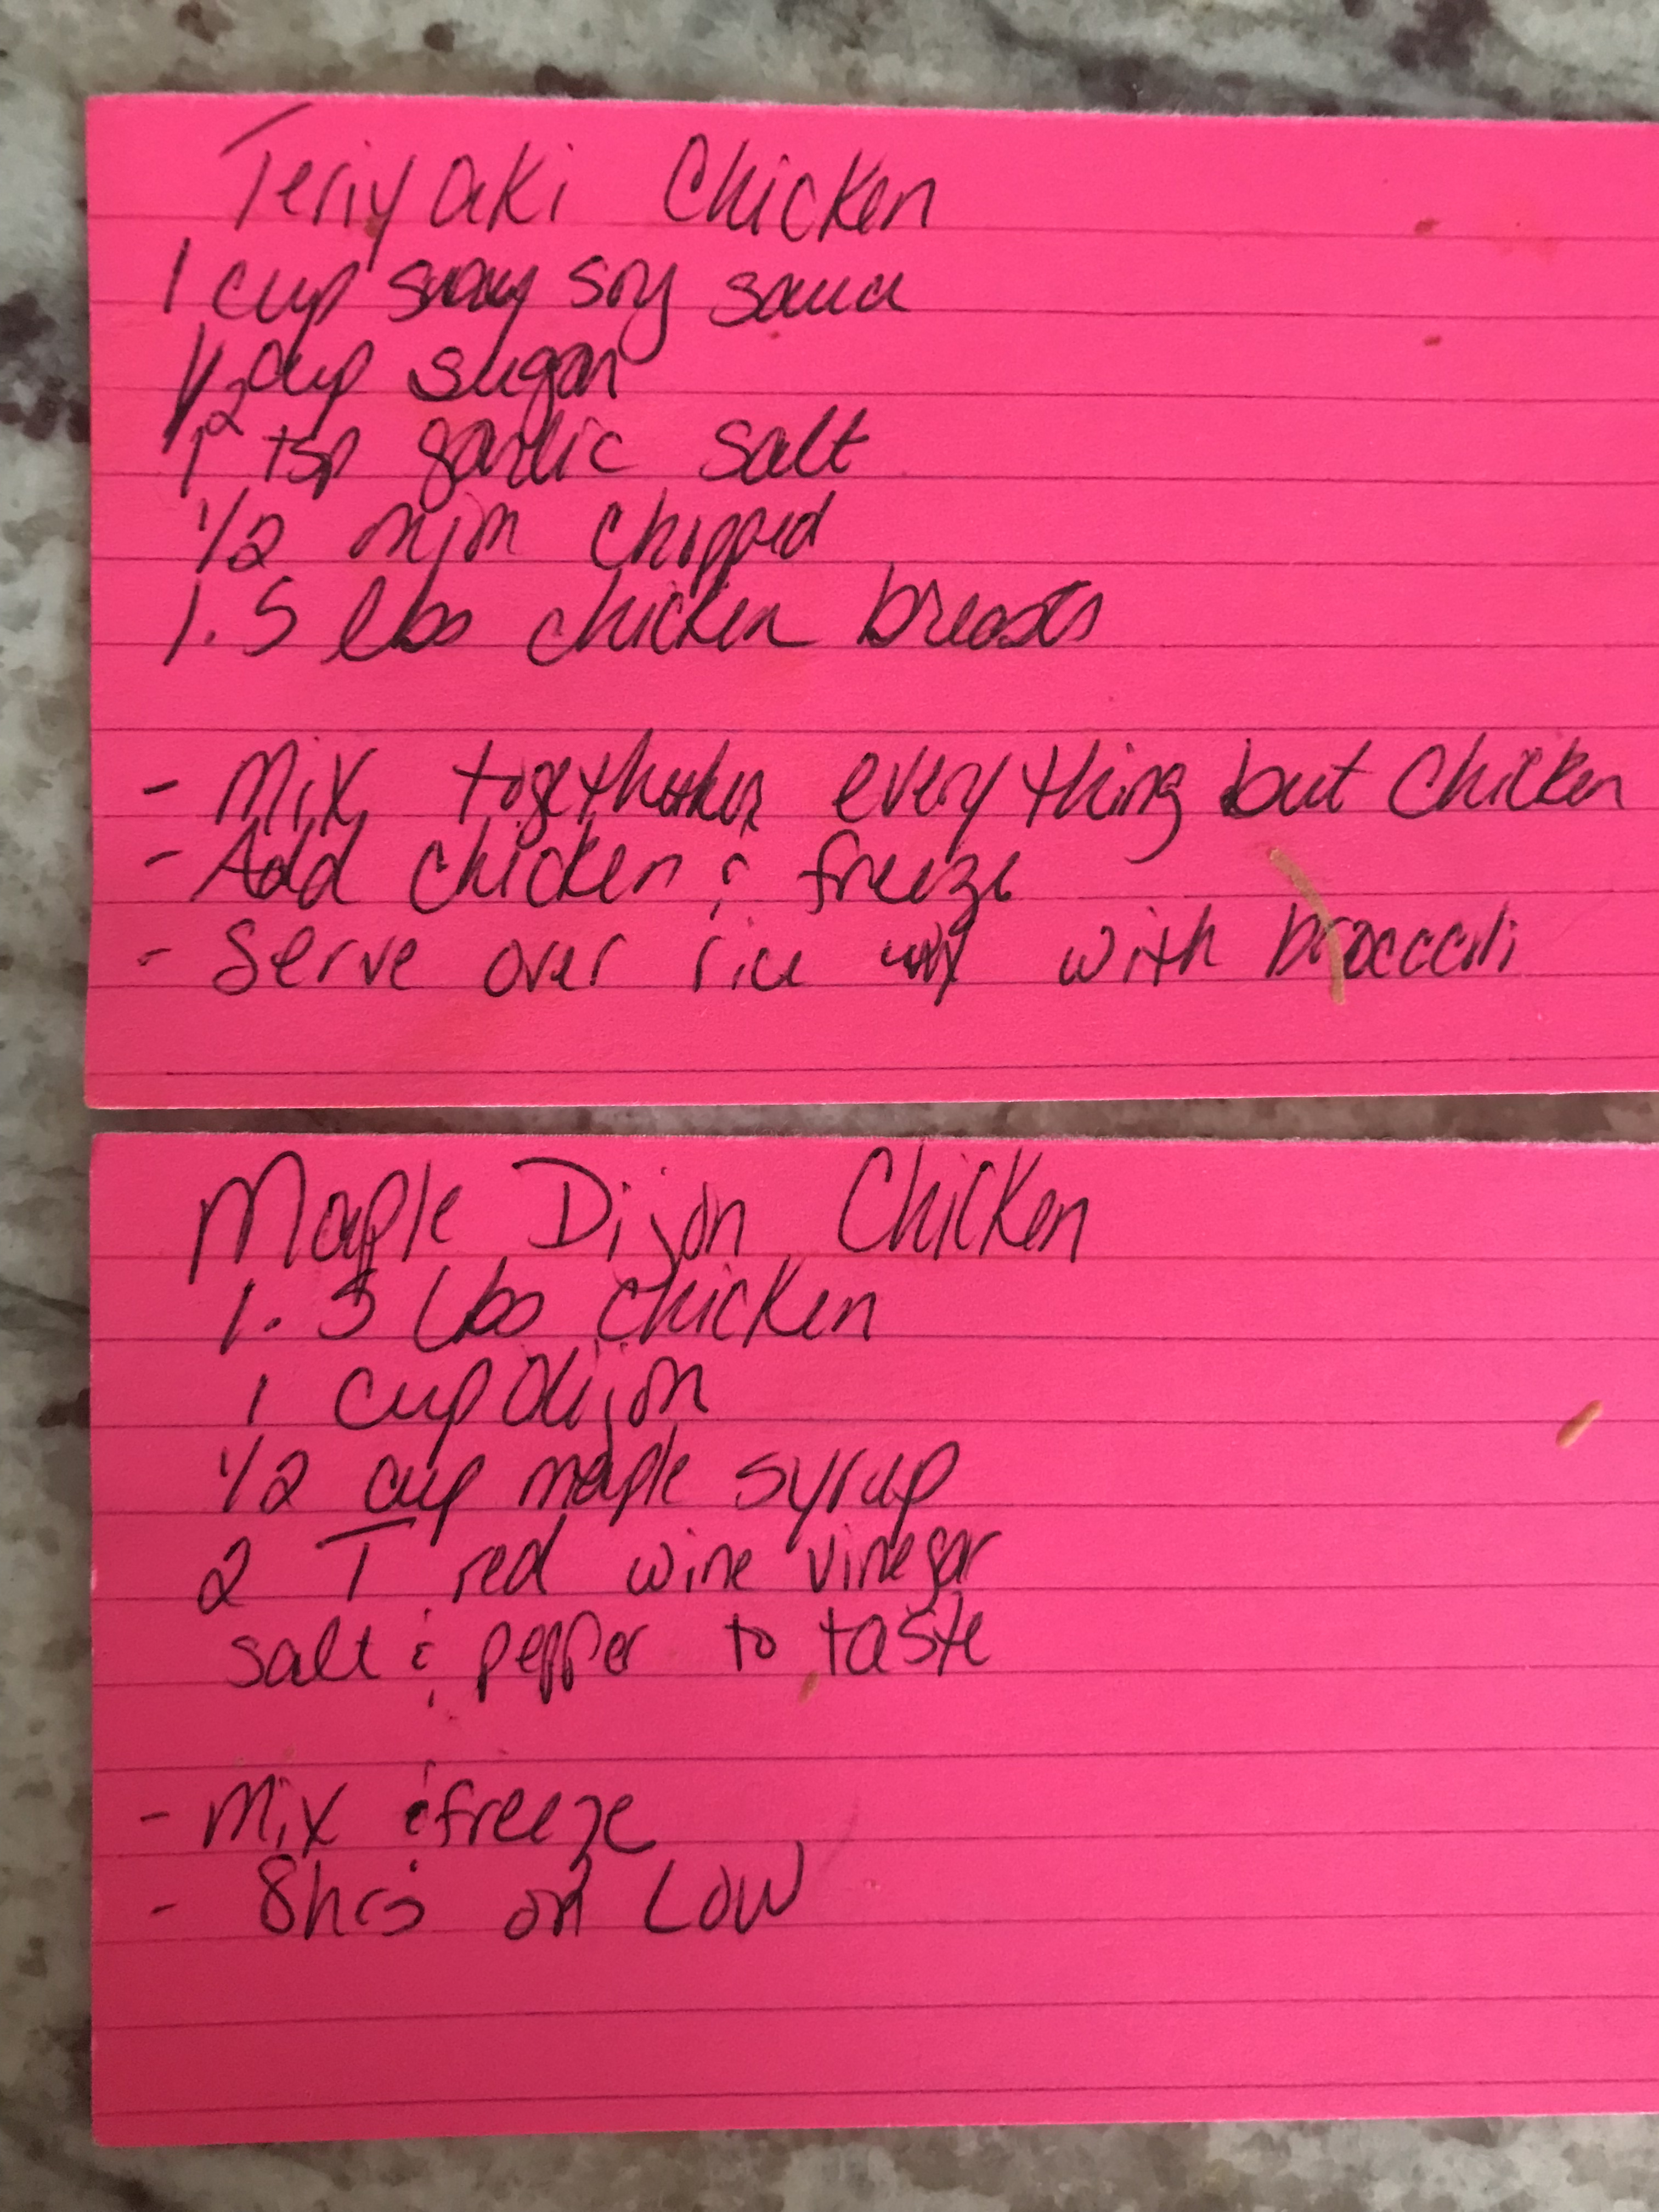 Teriyaki Chicken
1 cup soy sauce
1/2 cup sugar
1 tsp garlic salt
1/2 chopped
1.5 lbs chicken breasts
- Mix together everything but chicken
- Add chicken & freeze
- Serve over rice with broccoli
Maple Dijon Chicken
1.5 lbs chicken
1 cup dijon
1/2 cup maple syrup
2 T red wine vinegar
salt & pepper to taste
- Mix & freeze
- 8hrs on LOW